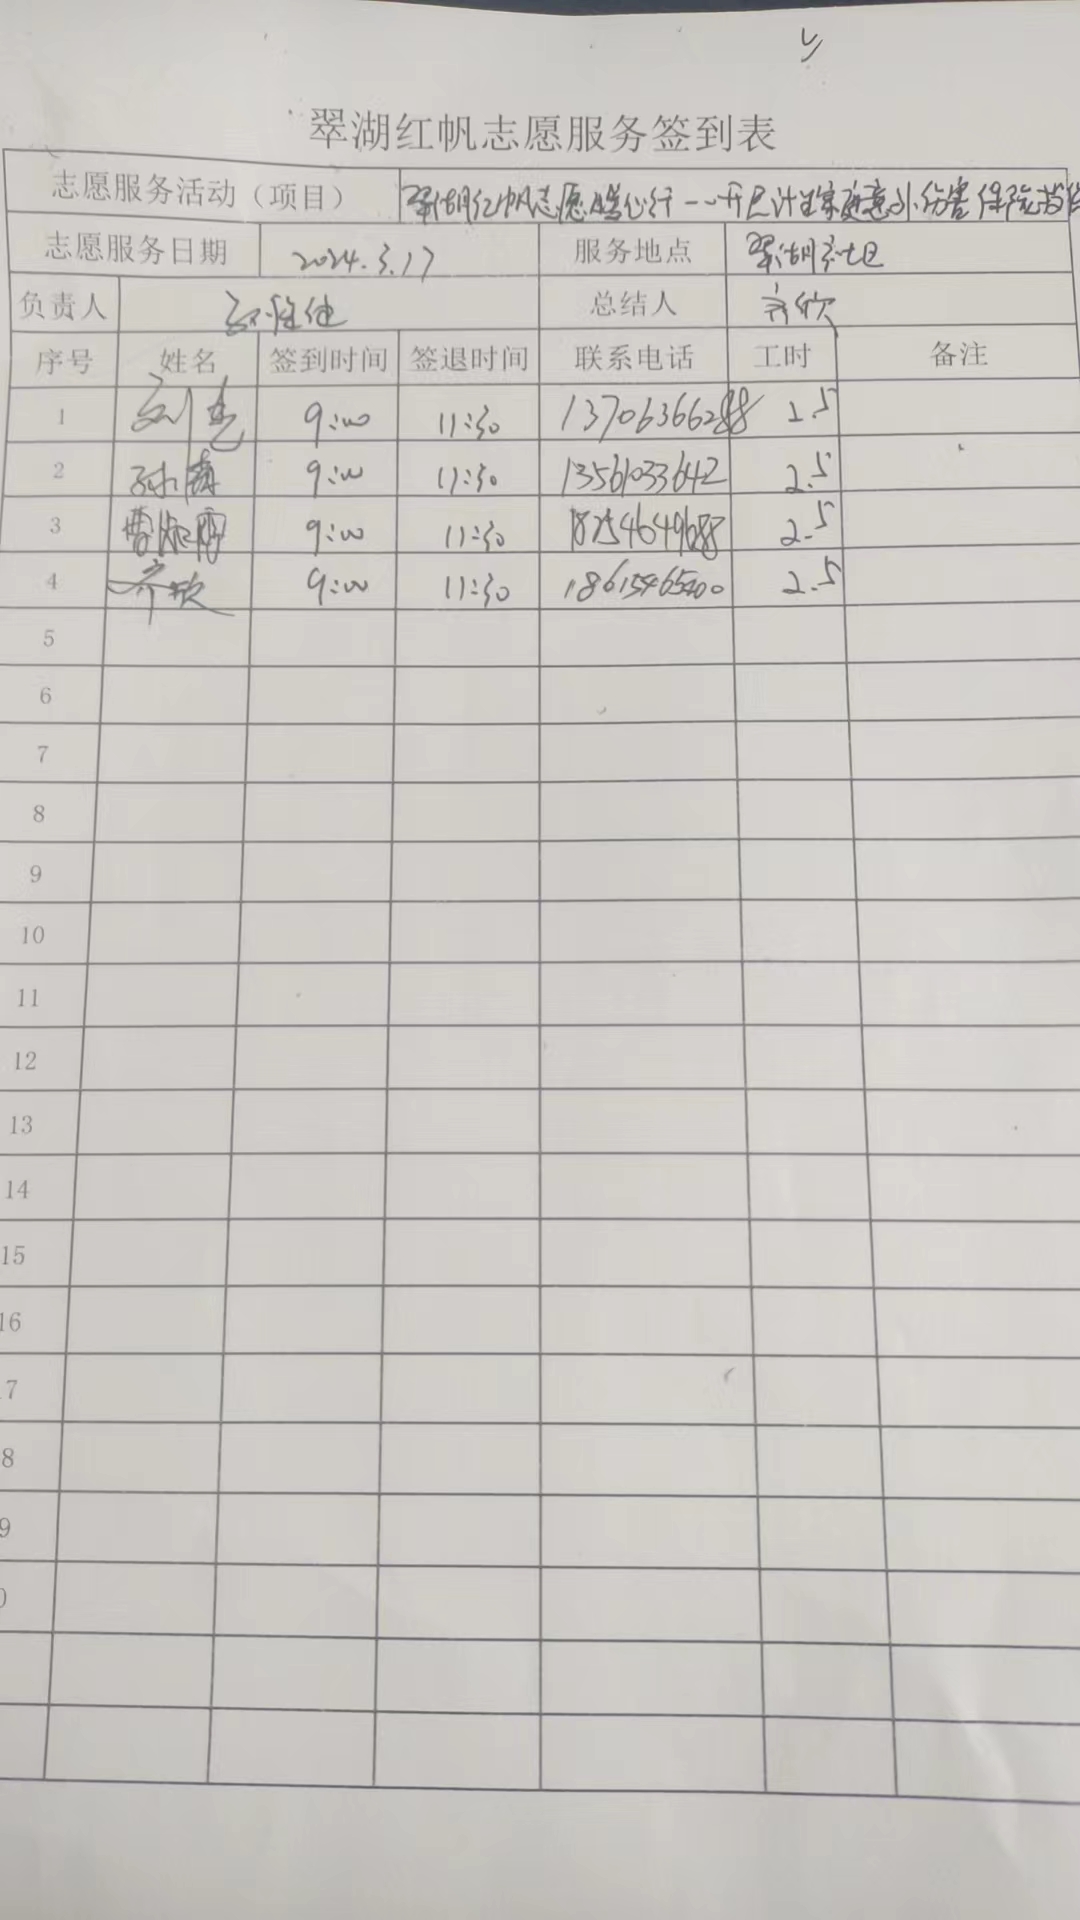 翠湖红帆志愿服务签到表
志愿服务活动（项目） 翠湖红帆志愿暖心行——开展计生家庭意外伤害保险宣传
志愿服务日期 2024.3.17 服务地点 翠湖社区
负责人 总结人 齐欣
序号 姓名 签到时间 签退时间 联系电话 工时 备注
1 刘 9:00 11:30 13706366288 2.5
2 孙 9:00 11:30 13561033642 2.5
3 曹淑 9:00 11:30 18254649688 2.5
4 齐欣 9:00 11:30 18615465400 2.5
5
6
7
8
9
10
11
12
13
14
15
16
7
8
9
0